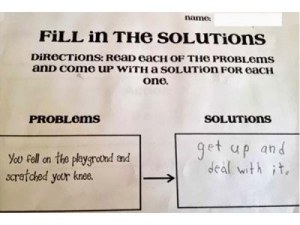 name:
Fill in the Solutions
Directions: Read each of the problems
and come up with a solution for each
one.
Problems
Solutions
You fell on the playground and
scratched your knee.
get up and
deal with it.